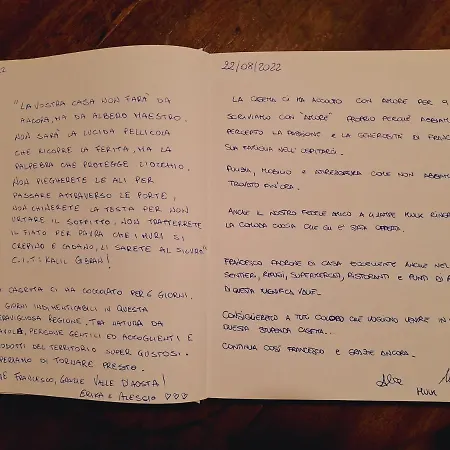 22
"LA VOSTRA CASA NON SARÀ DA
ANCORA, MA DA ALBERO MAESTRO.
NON SARÀ LA LUCIDA PELLICOLA
CHE RICOPRE LA FERITA, MA LA
PALPEBRA CHE PROTEGGE L'OCCHIO.
NON PIEGHERETE LE ALI PER
PASSARE ATTRAVERSO LE PORTE,
NON CHINERETE LA TESTA PER NON
URTARE IL SOFFITTO, NON TRATTERRETE
IL FIATO PER PAURA CHE I MURI SI
CREPINO E CADANO, LÌ SARETE AL SICURO"
CIT: KALIL GIBRAN!
CASETTA CI HA COCCOLATO PER 6 GIORNI.
GIORNI INDIMENTICABILI IN QUESTA
MERAVIGLIOSA REGIONE, TRA NATURA DA
PERSONE GENTILI ED ACCOGLIENTI E
PRODOTTI DEL TERRITORIO SUPER GUSTOSI.
SPERIAMO DI TORNARE PRESTO.
FRANCESCO, GRAZIE VALLE D'AOSTA!
ERIKA E ALESSIO ♡♡♡
22/08/2022
LA CASETTA CI HA ACCOLTO CON AMORE PER 9
SCRIVIAMO CON "AMORE" PROPRIO PERCHÈ ABBIAMO
PERCEPITO LA PASSIONE E LA GENEROSITÀ DI FRANC
SUA FAMIGLIA NELL'OSPITARCI.
PULIZIA, MOBILIO E ATTREZZATURA COME NON ABBIAM
TROVATO FIN'ORA.
ANCHE IL NOSTRO FEDELE AMICO A 4 ZAMPE MUUK RINGR
LA COMODA DOCCIA CHE GLI E' STATA OFFERTA.
FRANCESCO PADRONE DI CASA ECCELLENTE ANCHE NEL
SENTIERI, RIFUGI, SUPERMERCATI, RISTORANTI E PUNTI DI
DI QUESTA MAGNIFICA VALLE.
CONSIGLIEREMO A TUTTI COLORO CHE VOGLIONO VENIRE IN
QUESTA STUPENDA CASETTA.
CONTINUA COSÌ FRANCESCO E GRAZIE ANCORA.
MUUK